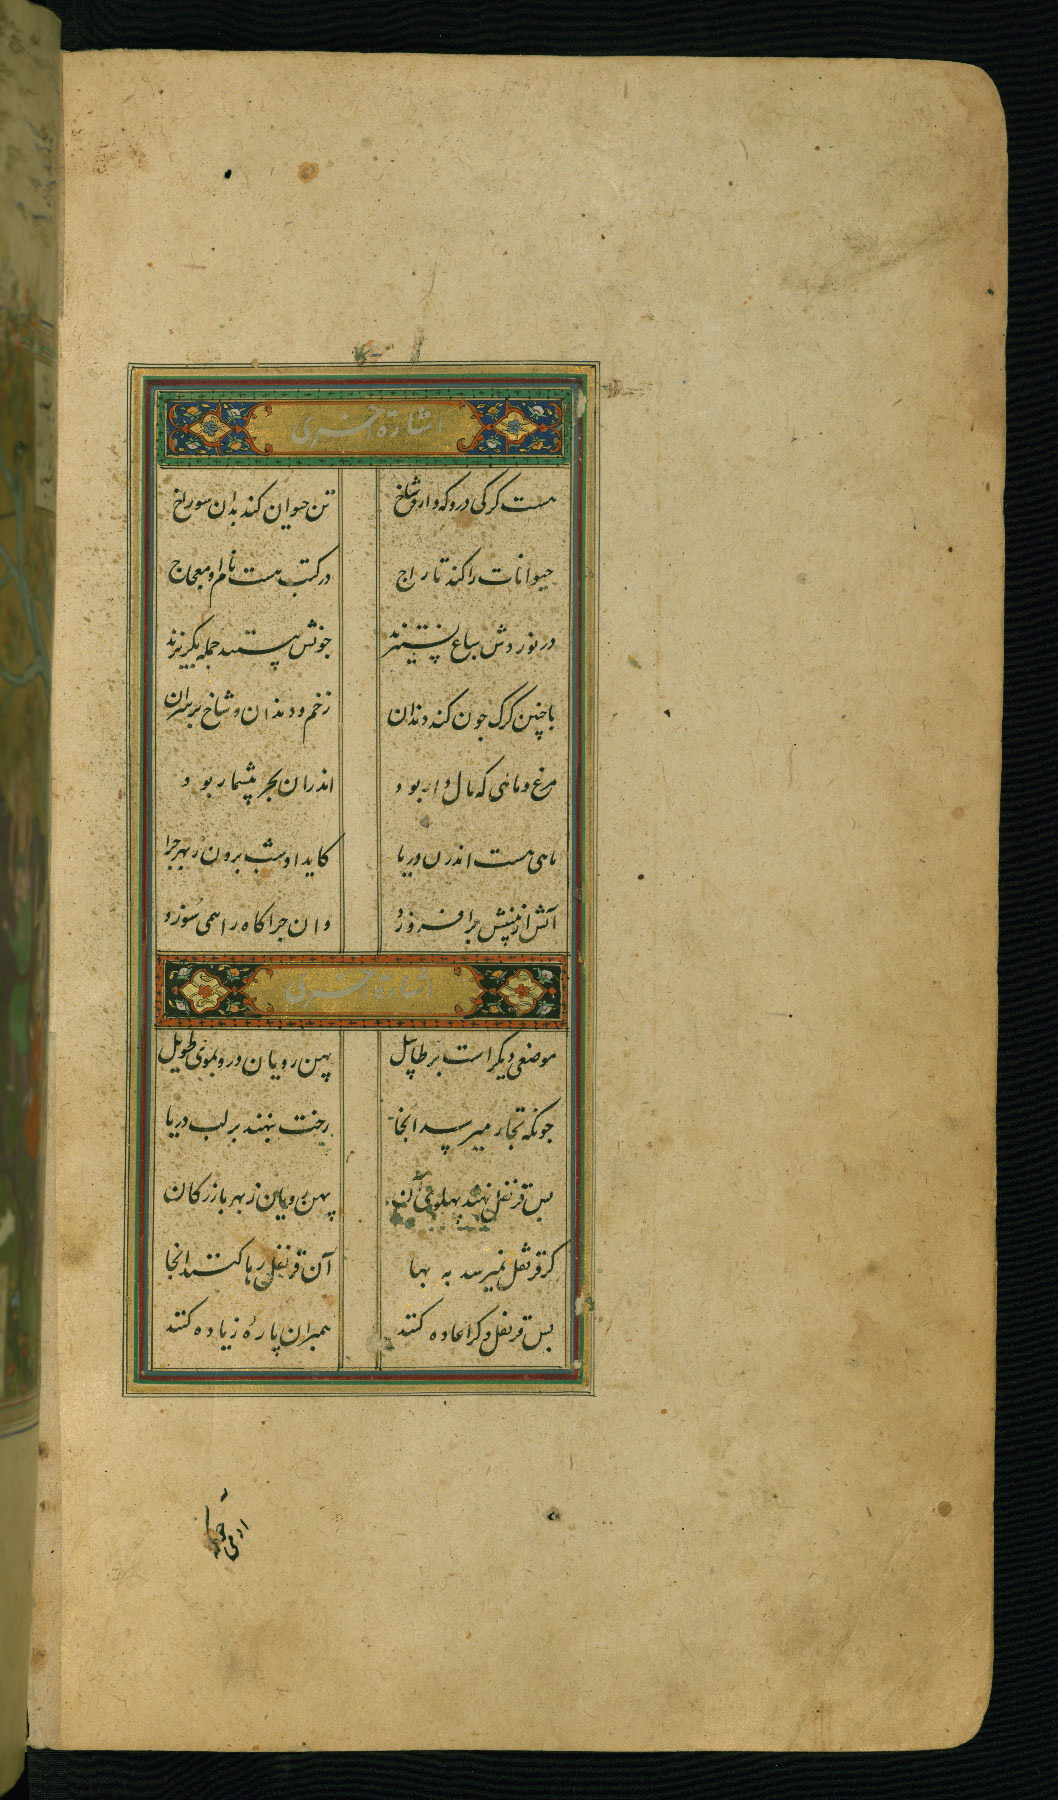 اشارة اخری
هست کرکی درو که دارد شاخ تن حیوان کند بدان سوراخ
حیوانات را کند تاراج در کتب هست نام او معجاج
در نوردوش سباع بستیزند جونش بینند جمله بکریزند
باچنین کرک جون کند دندان زخم دندان و شاخ برسران
مرغ و ماهی که مال دار بود اندران بحر بیشمار بود
ماهی هست اندرن دریا کاید او شب برون ز بهر جرا
آتش از بینیش برافروزد وان جراکاه را همی سوزد
اشارة اخری
موضعی دیکر است برطایل پهن رویان درو بموی طویل
جونکه تجار میرسد انجا رخت بنهند بر لب دریا
بس قرنفل نهند پهلوی آن پهن رویان ز بهر بازرکان
کر قرنفل نمیرسد به بها آن قرنفل رها کنند انجا
بس قرنفل دکر اعاده کنند هم بران پاره زیاده کنند